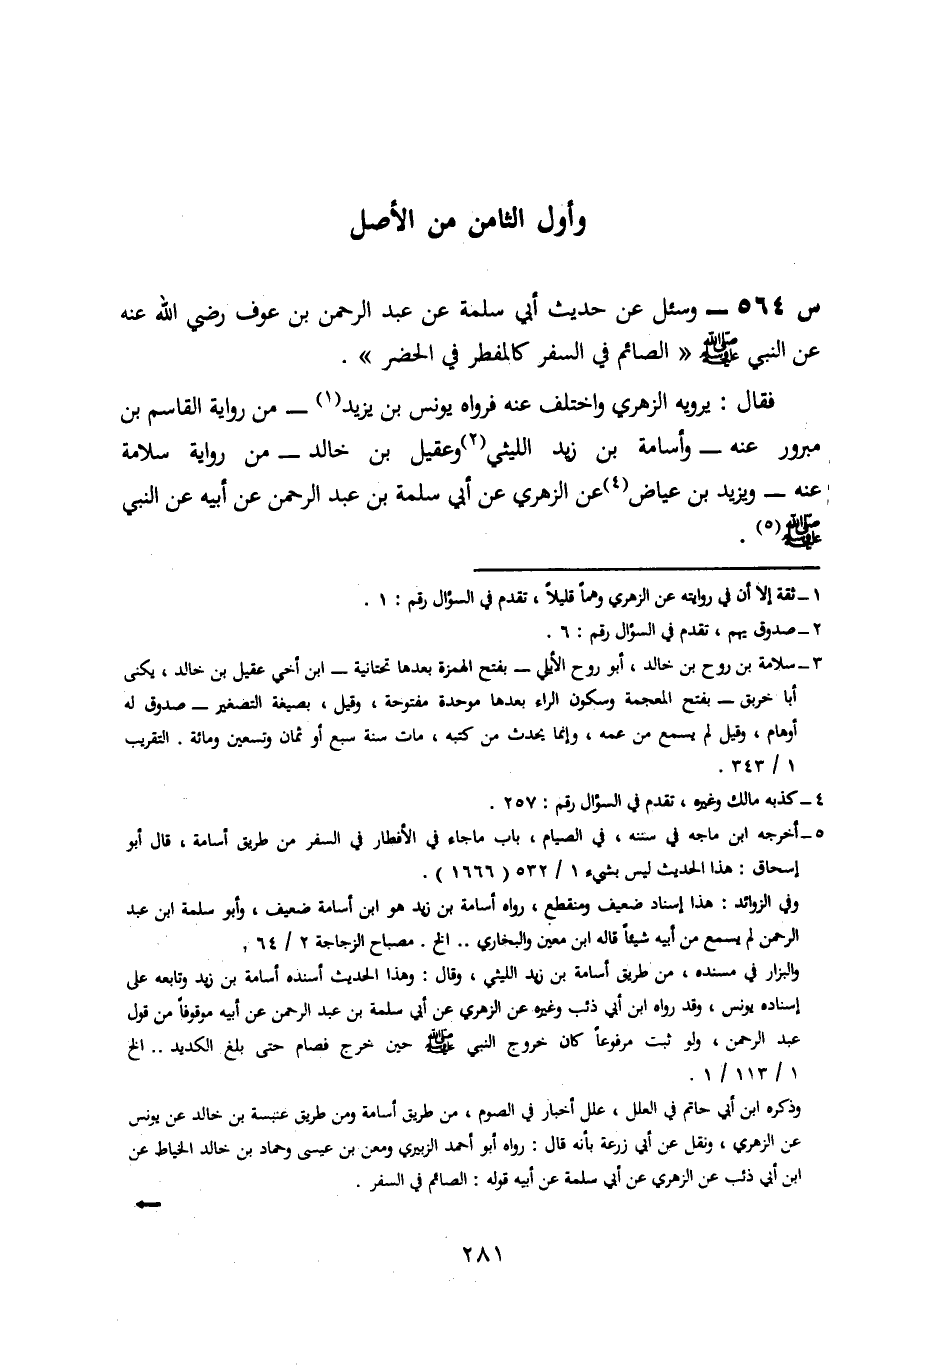 وأول الثامن من الأصل
س ٥٦٤ ــ وسئل عن حديث أبي سلمة عن عبد الرحمن بن عوف رضي الله عنه
عن النبي ﷺ « الصائم في السفر كالمفطر في الحضر » .
فقال : يرويه الزهري واختلف عنه فرواه يونس بن يزيد(١) ــ من رواية القاسم بن
مبرور عنه ــ وأسامة بن زيد الليثي(٢)وعقيل بن خالد ــ من رواية سلامة
عنه ــ ويزيد بن عياض(٤)عن الزهري عن أبي سلمة بن عبد الرحمن عن أبيه عن النبي
ﷺ(٥) .
١ ــ ثقة إلا أن في روايته عن الزهري وهماً قليلاً ، تقدم في السؤال رقم : ١ .
٢ ــ صدوق يهم ، تقدم في السؤال رقم : ٦ .
٣ ــ سلامة بن روح بن خالد ، أبو روح الأيلي ــ بفتح الهمزة بعدها تحتانية ــ ابن أخي عقيل بن خالد ، يكنى
أبا خربق ــ بفتح المعجمة وسكون الراء بعدها موحدة مفتوحة ، وقيل ، بصيغة التصغير ــ صدوق له
أوهام ، وقيل لم يسمع من عمه ، وإنما يحدث من كتبه ، مات سنة سبع أو ثمان وتسعين ومائة . التقريب
١ / ٣٤٣ .
٤ ــ كذبه مالك وغيره ، تقدم في السؤال رقم : ٢٥٧ .
٥ ــ أخرجه ابن ماجه في سننه ، في الصيام ، باب ماجاء في الأفطار في السفر من طريق أسامة ، قال أبو
إسحاق : هذا الحديث ليس بشيء ١ / ٥٣٢ ( ١٦٦٦ ) .
وفي الزوائد : هذا إسناد ضعيف ومنقطع ، رواه أسامة بن زيد هو ابن أسامة ضعيف ، وأبو سلمة ابن عبد
الرحمن لم يسمع من أبيه شيئاً قاله ابن معين والبخاري .. الخ . مصباح الزجاجة ٢ / ٦٤ ,
والبزار في مسنده ، من طريق أسامة بن زيد الليثي ، وقال : وهذا الحديث أسنده أسامة بن زيد وتابعه على
إسناده يونس ، وقد رواه ابن أبي ذئب وغيره عن الزهري عن أبي سلمة بن عبد الرحمن عن أبيه موقوفاً من قول
عبد الرحمن ، ولو ثبت مرفوعاً كان خروج النبي ﷺ حين خرج فصام حتى بلغ الكديد .. الخ
١ / ١١٣ / ١ .
وذكره ابن أبي حاتم في العلل ، علل أخبار في الصوم ، من طريق أسامة ومن طريق عنبسة بن خالد عن يونس
عن الزهري ، ونقل عن أبي زرعة بأنه قال : رواه أبو أحمد الزبيري ومعن بن عيسى وحماد بن خالد الخياط عن
ابن أبي ذئب عن الزهري عن أبي سلمة عن أبيه قوله : الصائم في السفر .
←
٢٨١